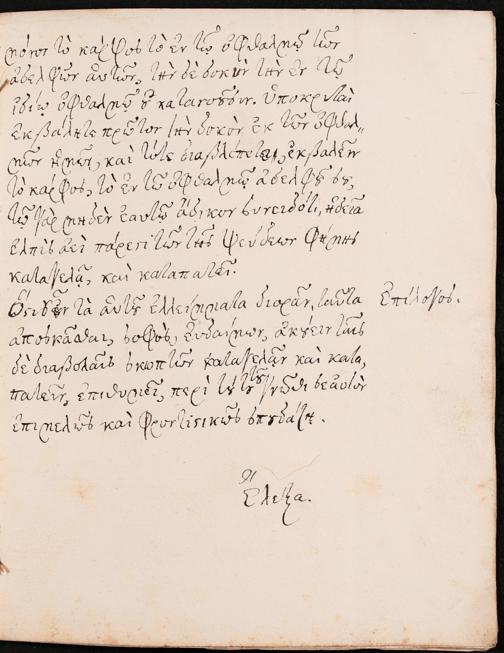 μόνοι τὸ κάρφος τὸ ἐν τῷ ὀφθαλμῷ τῶν
ἀδελφῶν αὐτῶν, τὴν δὲ δοκὸν τὴν ἐν τῷ
ἰδίῳ ὀφθαλμῷ οὐ κατανοοῦσιν. ὑποκριταὶ
ἐκβάλλετε πρῶτον τὴν δοκὸν ἐκ τῶν ὀφθαλ-
μῶν ὑμῶν, καὶ τότε διαβλέπετε, ἐκβαλεῖν
τὸ κάρφος, τὸ ἐν τῷ ὀφθαλμῷ ἀδελφοῦ σου,
τῷ γὰρ μηδὲν ἑαυτῷ ἄδικον συνειδότι, ἡδεῖα
ἐλπὶς ἀεὶ πάρεστι τῶν τῆς ψεύδεων φήμης
καταγελᾷ, καὶ καταπατεῖ.
τὰ αὐτοῦ ἐλλείμματα διορᾷν, ταῦτα
Ἐπίλογος.
σοφὸς, εὐδαίμων, ἀκούειν ταῖς
δὲ διαβολαῖς σκωπτῶν καταγελᾷν καὶ κατα-
πατεῖν, ἐπιθυμεῖ, περὶ τούτου τοῦ γνῶθι σεαυτὸν
ἐπιμελῶς καὶ φροντιστικῶς σπουδάζῃ.
Ἔλεξα.